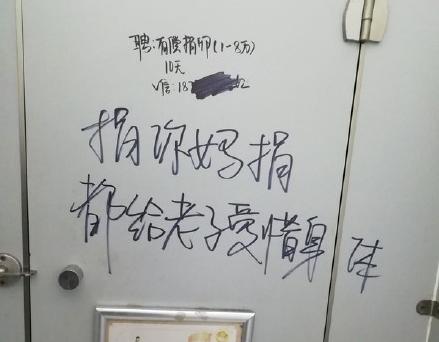 聘:有偿捐卵(1-8万)
10天
V信:18
捐你妈捐
都给老子爱惜身体